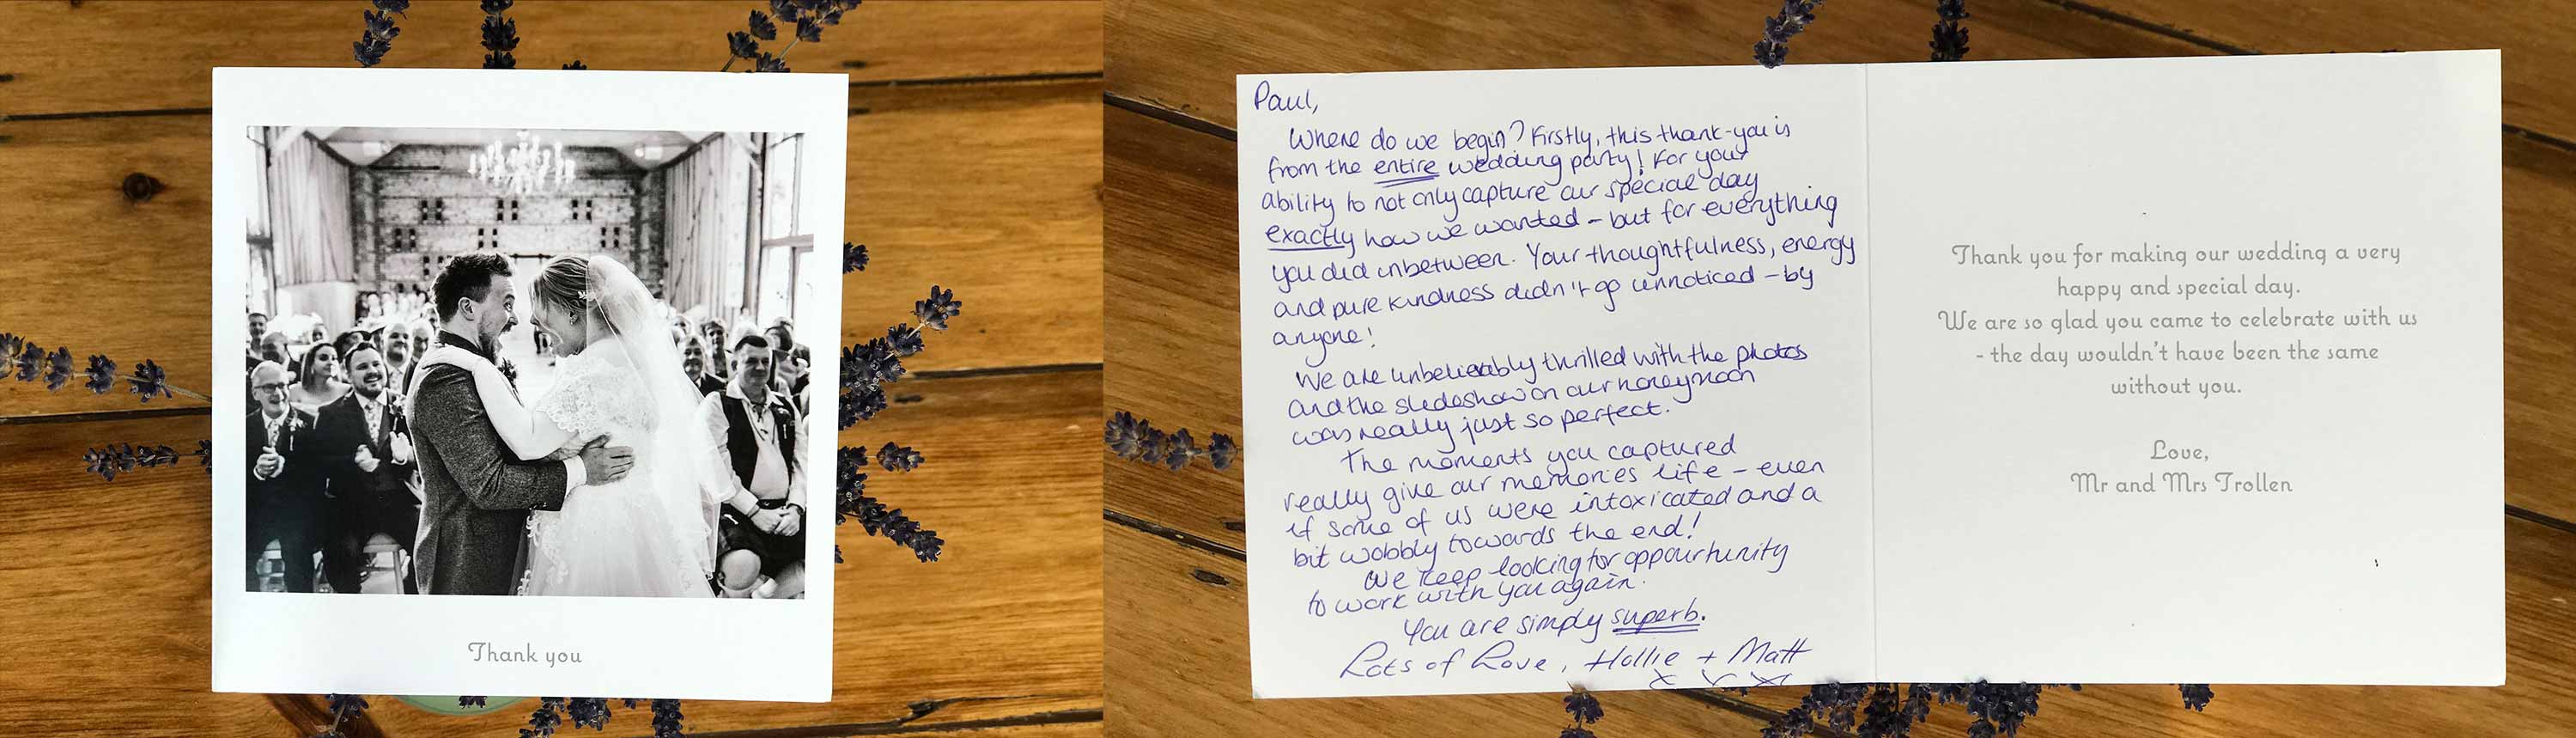 Thank you
Paul,
Where do we begin? Firstly, this thank-you is
from the entire wedding party! For your
ability to not only capture our special day
exactly how we wanted - but for everything
you did inbetween. Your thoughtfulness, energy
and pure kindness didn't go unnoticed - by
anyone!
We are unbelievably thrilled with the photos
and the slideshow on our honeymoon
was really just so perfect.
The moments you captured
really give our memories life - even
if some of us were intoxicated and a
bit wobbly towards the end!
We keep looking for oppourtunity
to work with you again.
You are simply superb.
Lots of Love, Hollie + Matt
x x x
Thank you for making our wedding a very
happy and special day.
We are so glad you came to celebrate with us
- the day wouldn't have been the same
without you.
Love,
Mr and Mrs Trollen